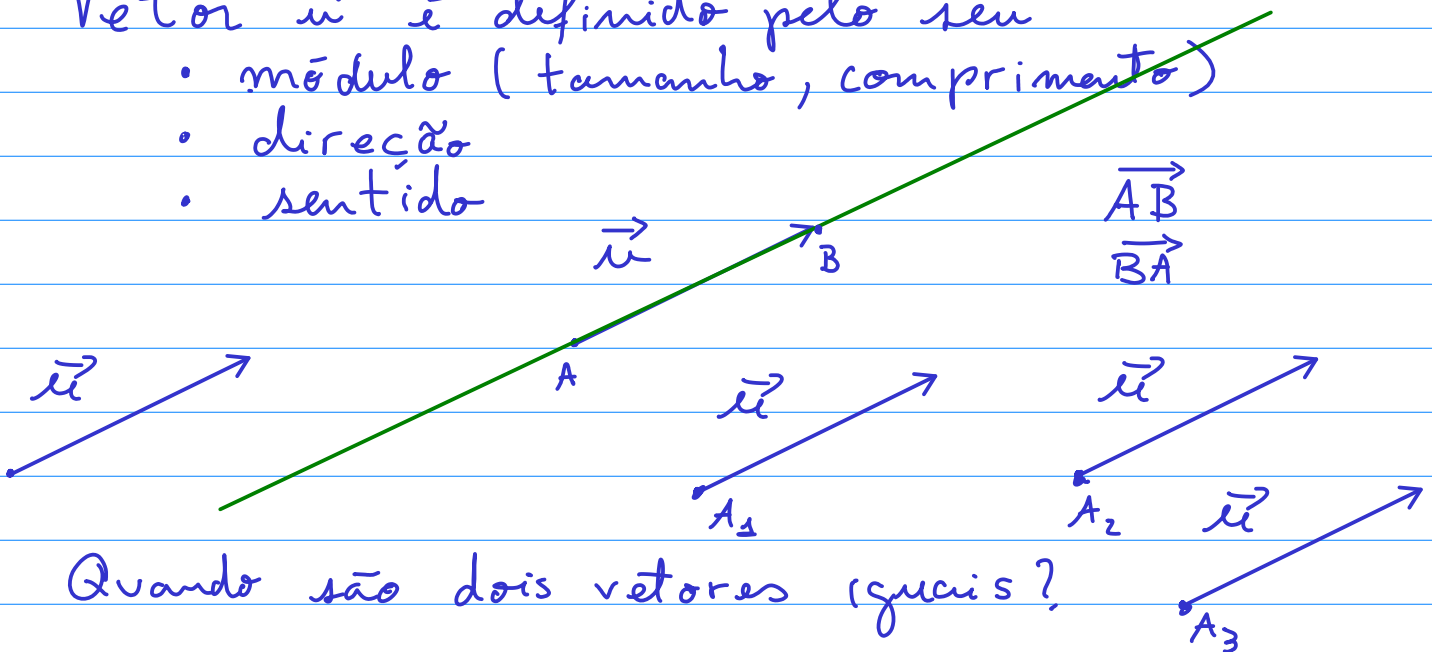 Vetor u⃗ é definido pelo seu
• módulo (tamanho, comprimento)
• direção
• sentido
A⃗B⃗
u⃗
B
B⃗A⃗
A
u⃗
u⃗
u⃗
A₁
A₂
u⃗
Quando são dois vetores iguais?
A₃